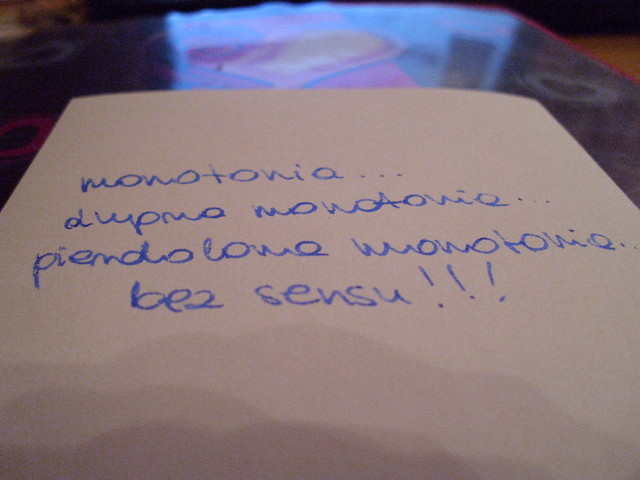 monotonia...
dupna monotonia...
pierdolona monotonia..
bez sensu!!!